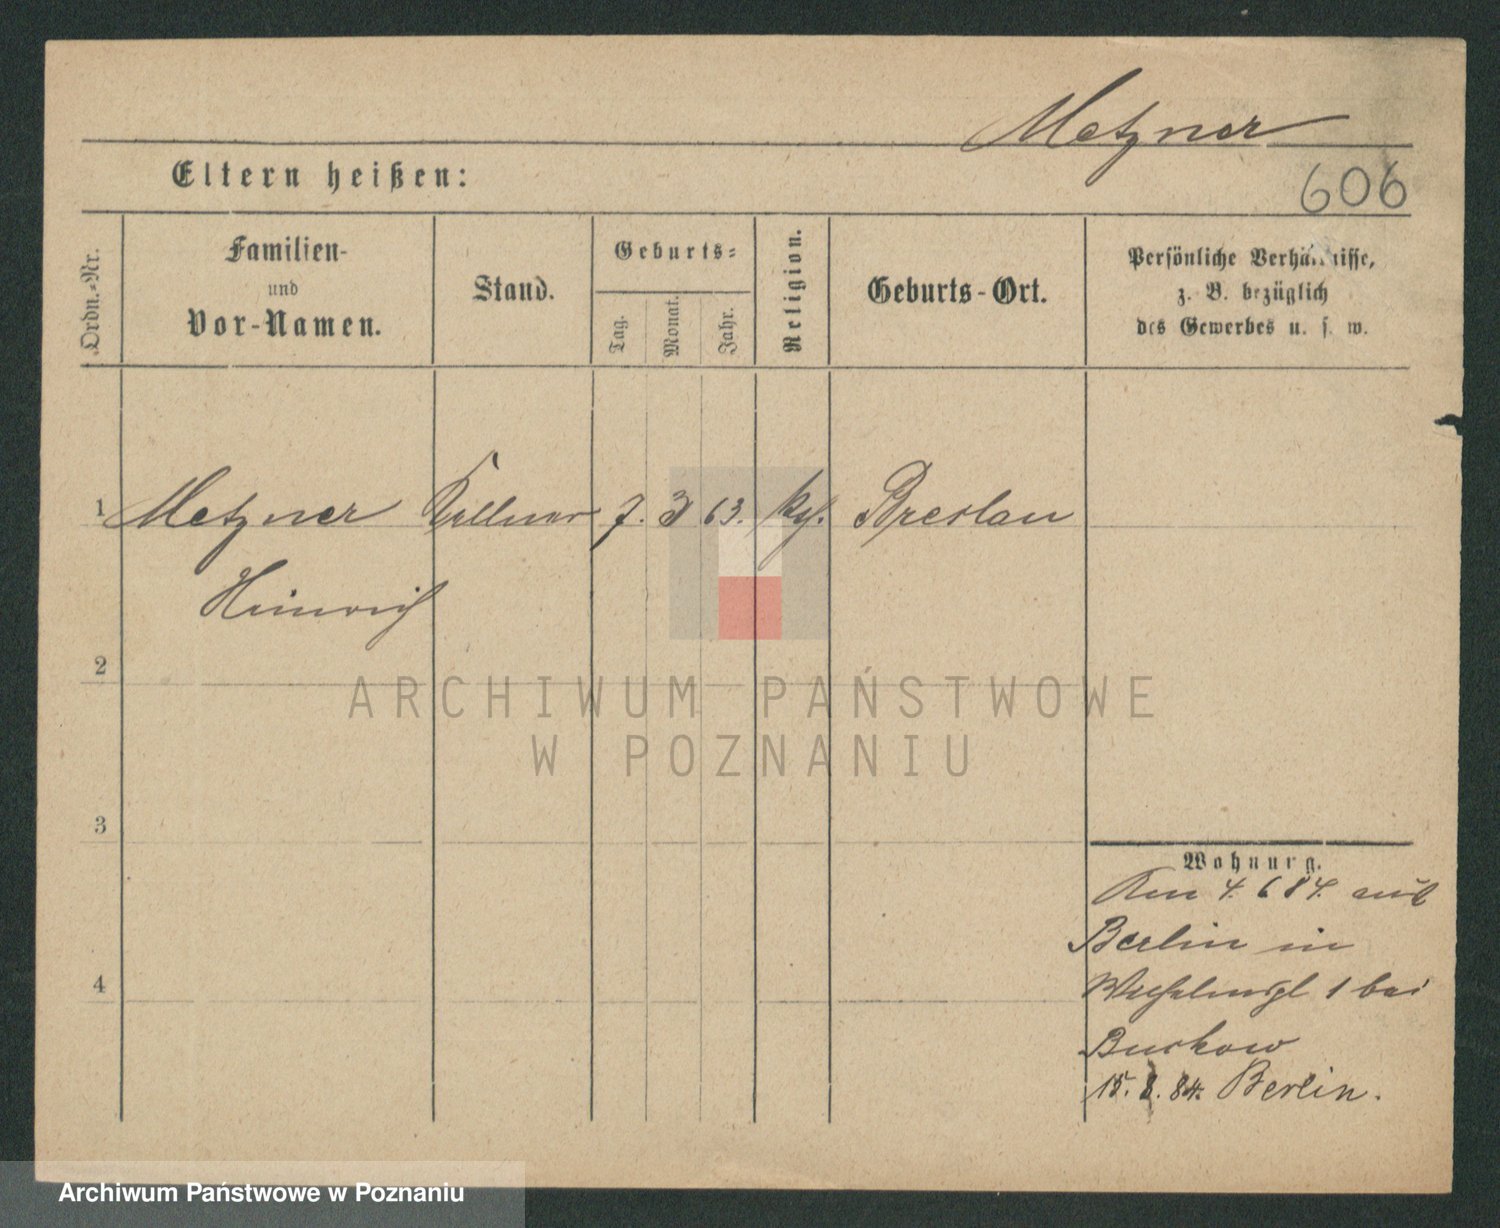 Metzner
Eltern heißen:
606
Ordn.-Nr.
Familien-
und
Vor-Namen.
Stand.
Geburts-
Tag.
Monat.
Jahr.
Religion.
Geburts-Ort.
Persönliche Verhältnisse,
z. B. bezüglich
des Gewerbes u. s. w.
1 Metzner Kellner 7. 3 63. kath. Breslau
Heinrich
2
3
4
Wohnung.
4. 6 84. aus
Berlin in
1 bei
Burkow
15. 8. 84. Berlin.
ARCHIWUM PAŃSTWOWE
W POZNANIU
Archiwum Państwowe w Poznaniu